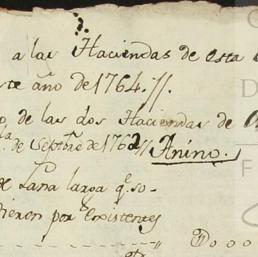 a las Haciendas de esta
este año de 1764.//.
o de las dos Haciendas de
la. de Septre. de 1762// Anino.
de Lana larga qe. so-
dieron por Existentes
Dooo